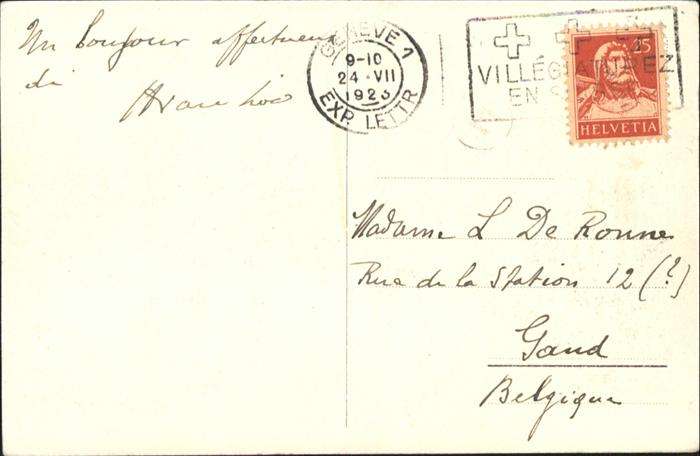 Un bonjour affectueux
di
GENEVE 1
9-10
24 · VII
1923
EXP. LETTR
VILLÉGIATUREZ
EN S
25
HELVETIA
Madame L De Ronne
Rue de la Station 12 (?)
Gand
Belgique